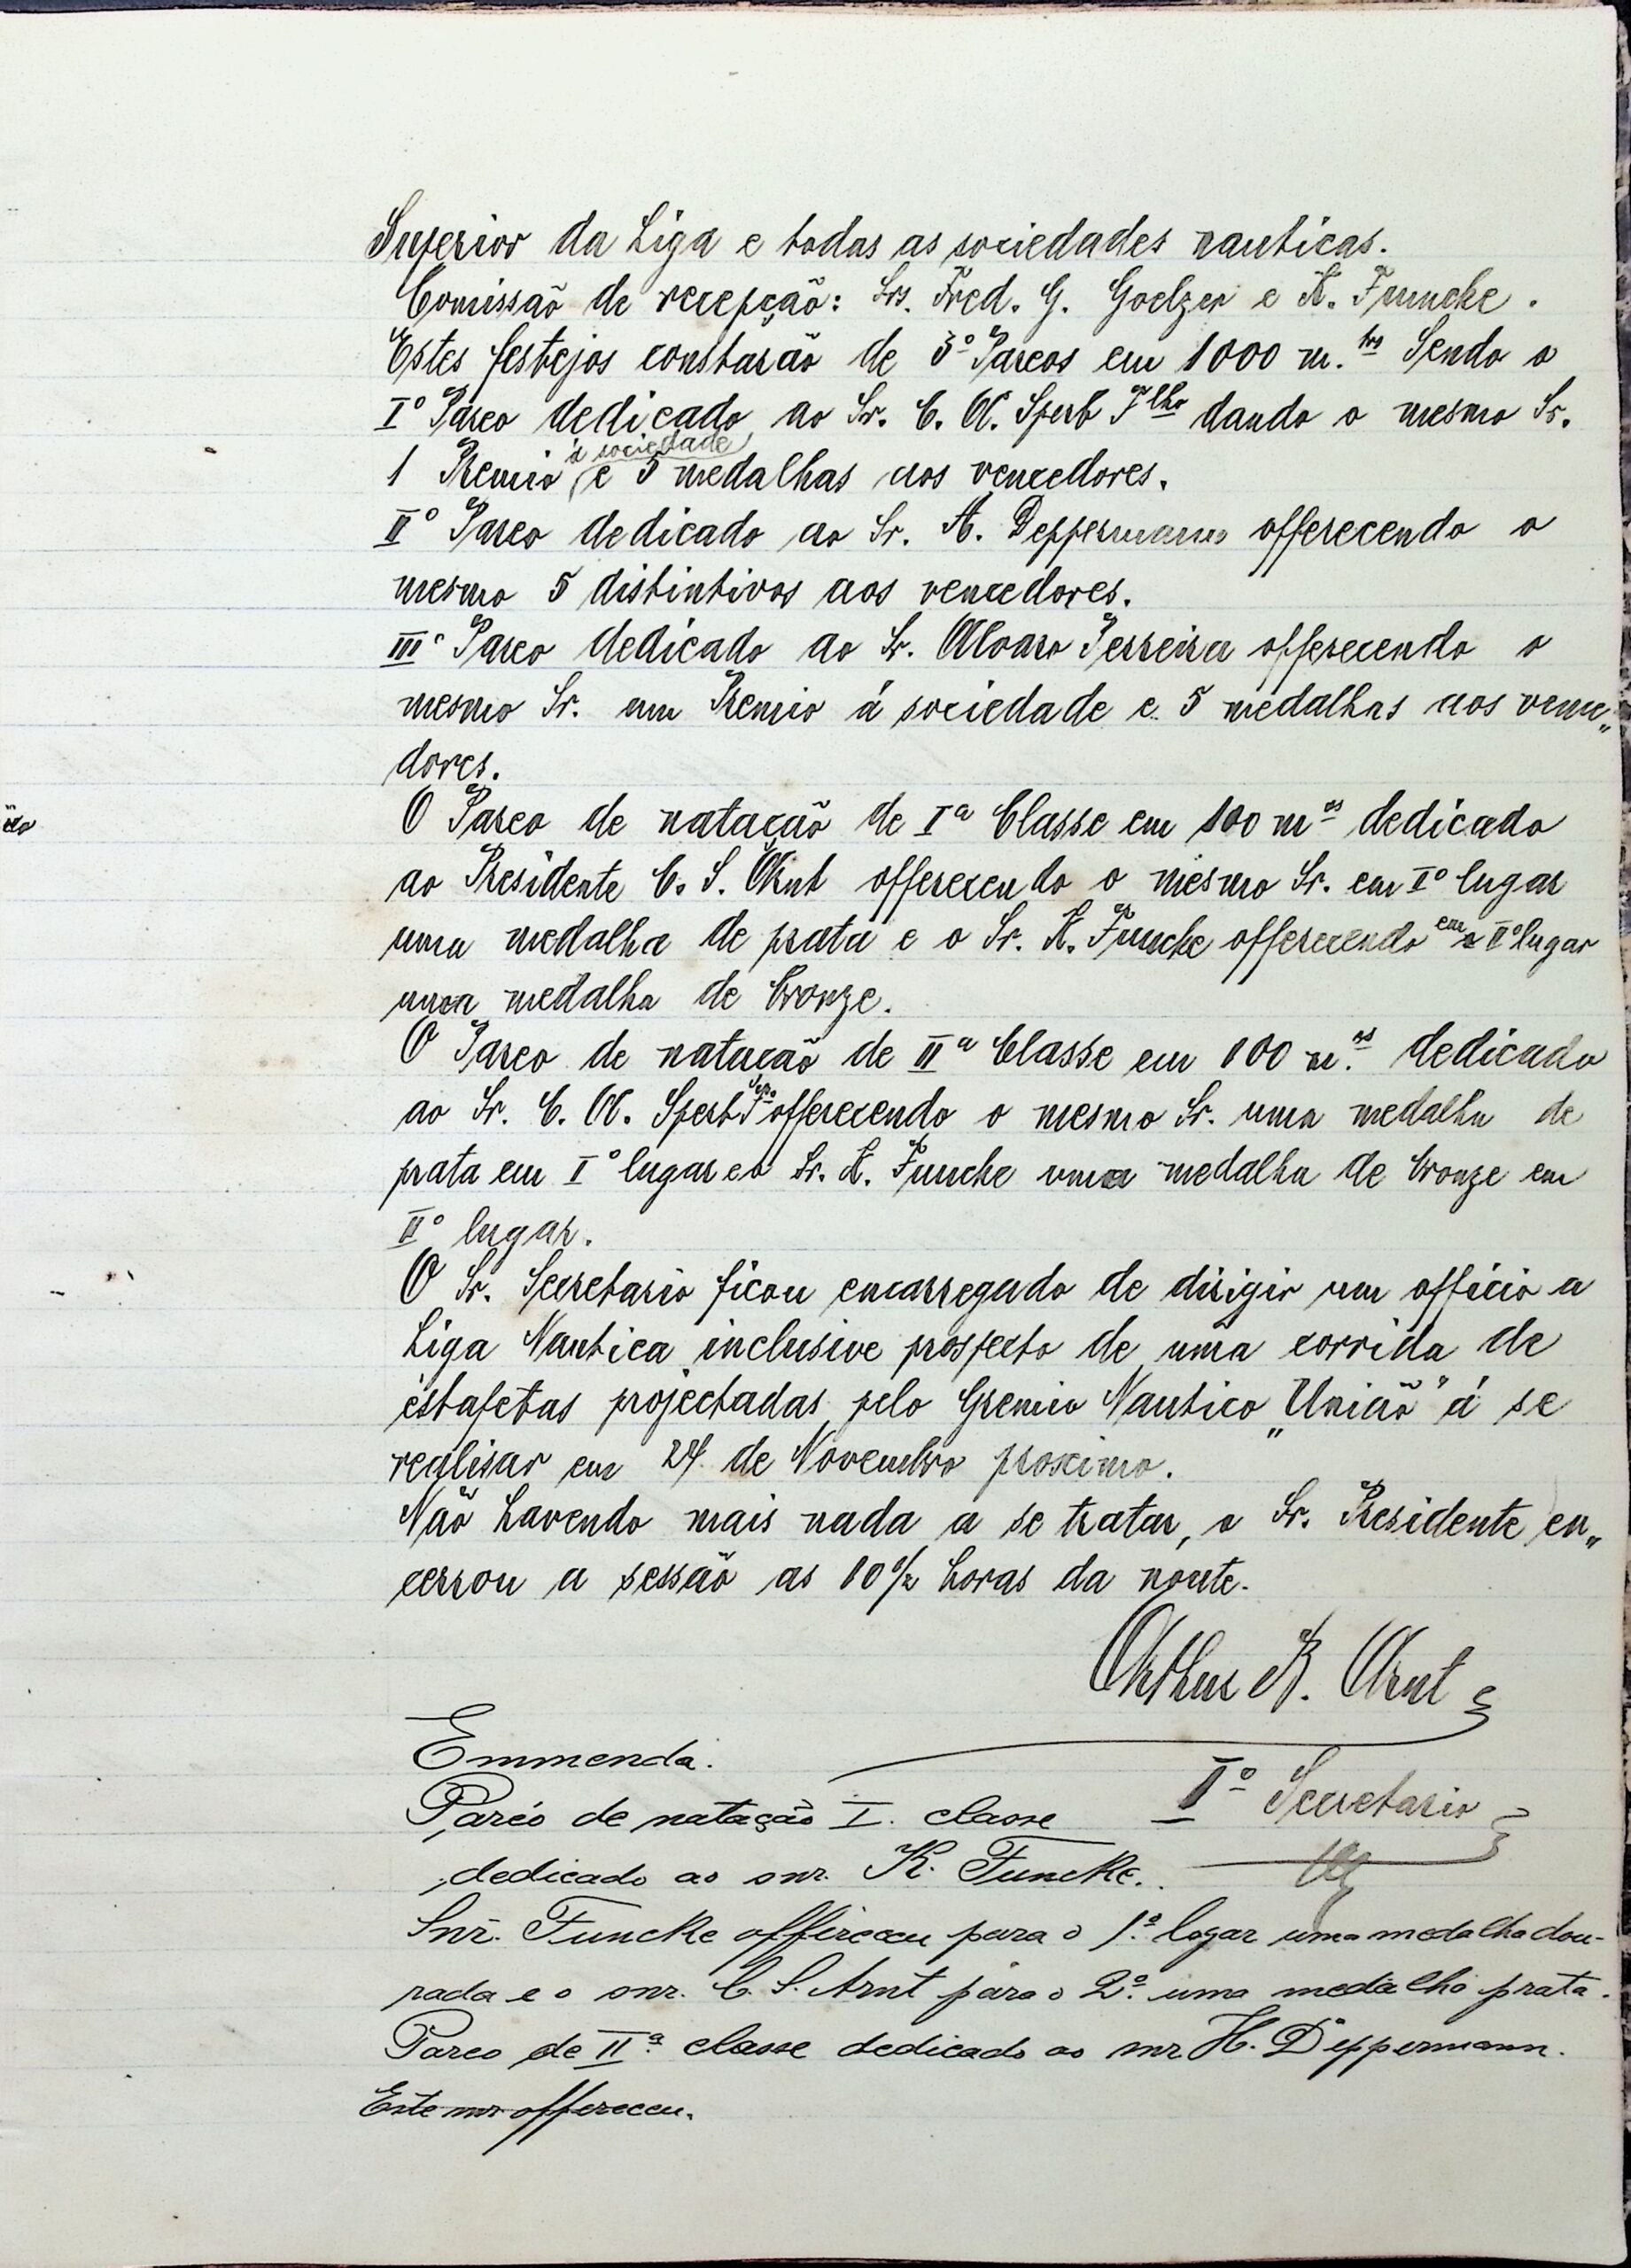 Superior da Liga e todas as sociedades nauticas.
Comissão de recepção: Srs. Fred. G. Goelzer e K. Funcke.
Estes festejos constarão de 3º Pareos em 1000 m.tros Sendo o
Iº Pareo dedicado ao Sr. C. A. Sperb Filho dando o mesmo Sr.
1 Premio á sociedade e 5 medalhas aos vencedores.
IIº Pareo dedicado ao Sr. A. Deppermann offerecendo o
mesmo 5 distintivos aos vencedores.
IIIº Pareo dedicado ao Sr. Alvaro Ferreira offerecendo o
mesmo Sr. um Premio á sociedade e 5 medalhas aos vence„
dores.
O Pareo de natação de Iª Classe em 100 m.os dedicado
ao Presidente C. S. Arnt offerecendo o mesmo Sr. em Iº lugar
uma medalha de prata e o Sr. K. Funcke offerecendo em IIº lugar
uma medalha de bronze.
O Pareo de natação de IIª Classe em 100 m.os dedicado
ao Sr. C. A. Sperb Fº offerecendo o mesmo Sr. uma medalha de
prata em Iº lugar e o Sr. K. Funcke uma medalha de bronze em
IIº lugar.
O Sr. Secretario ficou encarregado de dirigir um officio a
Liga Nautica inclusive prospecto de uma corrida de
estafetas projectadas pelo Gremio Nautico „União" á se
realisar em 24 de Novembro proximo.
Não havendo mais nada a se tratar, o Sr. Presidente en„
cerrou a sessão as 10½ horas da noute.
Arthur B. Arnt
Emmenda.
Iº Secretario
Paréo de natação I. classe
dedicado ao snr. K. Funcke.
Snr. Funcke offereceu para o 1º logar uma medalha dou-
rada e o snr. C. S. Arnt para o 2º uma medalha prata.
Pareo de IIª classe dedicado ao snr H. Deppermann.
Este snr offereceu.